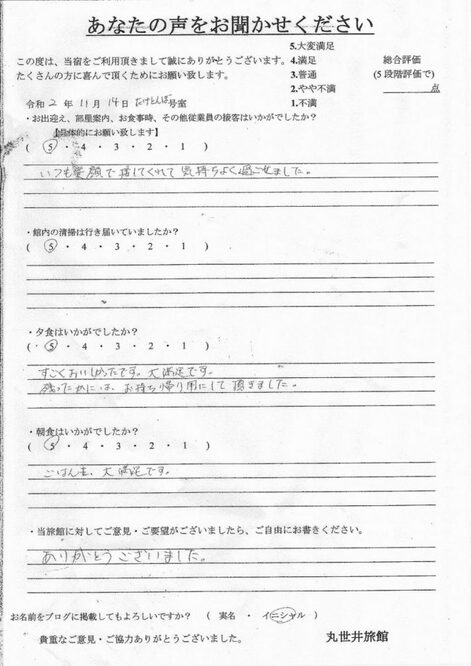 あなたの声をお聞かせください
この度は、当宿をご利用頂きまして誠にありがとうございます。
たくさんの方に喜んで頂くためにお願い致します。
5.大変満足
4.満足
3.普通
2.やや不満
1.不満
総合評価
(5段階評価で)
点
令和 2 年 11 月 14 日 だけとんぼ 号室
・お出迎え、部屋案内、お食事時、その他従業員の接客はいかがでしたか?
【具体的にお願い致します】
( 5 ・ 4 ・ 3 ・ 2 ・ 1 )
いつも笑顔で接してくれて気持ちよく過ごせました。
・館内の清掃は行き届いていましたか?
( 5 ・ 4 ・ 3 ・ 2 ・ 1 )
・夕食はいかがでしたか?
( 5 ・ 4 ・ 3 ・ 2 ・ 1 )
すごくおいしかったです。大満足です。
残ったかには、お持ち帰り用にして頂きました。
・朝食はいかがでしたか?
( 5 ・ 4 ・ 3 ・ 2 ・ 1 )
ごはんも、大満足です。
・当旅館に対してご意見・ご要望がございましたら、ご自由にお書きください。
ありがとうございました。
お名前をブログに掲載してもよろしいですか? ( 実名 ・ イニシャル )
貴重なご意見・ご協力ありがとうございました。
丸世井旅館